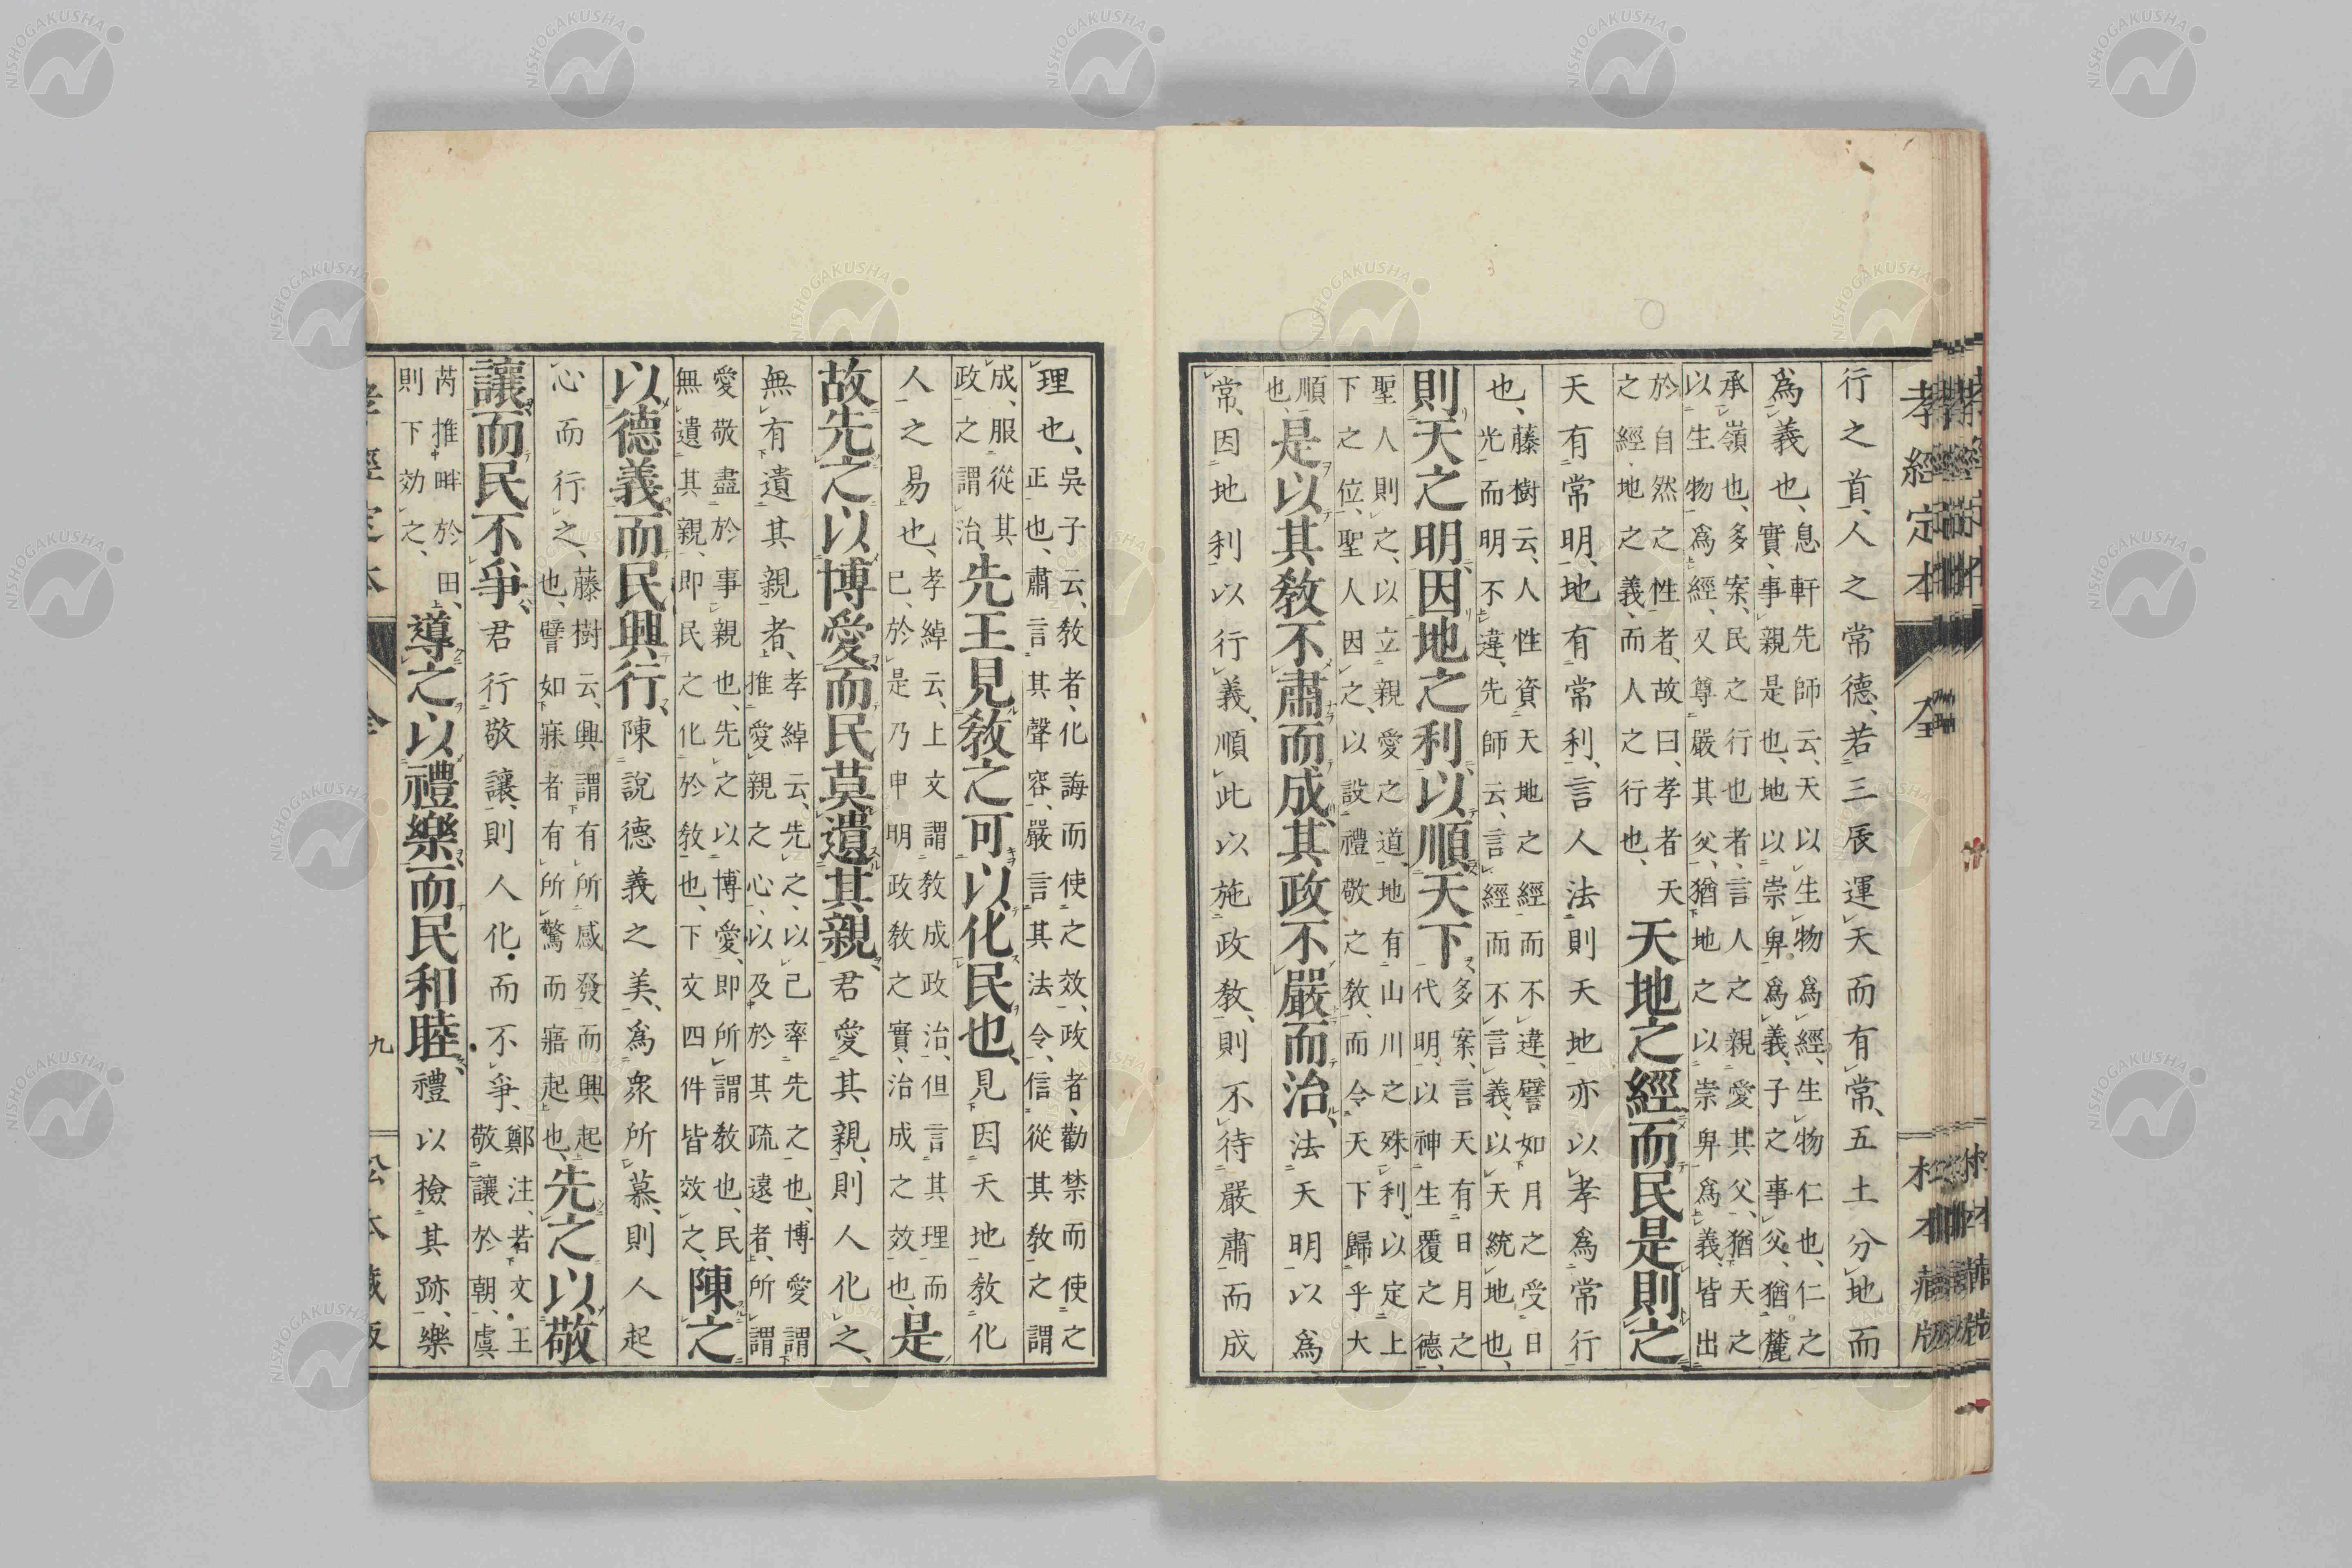 孝經定本 全 松本藏版
行之首、人之常德、若三辰運天而有常、五土分地而
爲義也、
息軒先師云、天以生物爲經、生物仁也、仁之
實、事親是也、地以崇卑爲義、子之事父、猶麓
承嶺也、多案、民之行也者、言人之親愛其父、猶天之
以生物爲經、又尊嚴其父、猶地之以崇卑爲義、皆出
於自然之性者、故曰、孝者天
之經、地之義、而人之行也、
天地之經而民是則之
天有常明、地有常利、言人法則天地亦以孝爲常行
也、
藤樹云、人性資天地之經而不違、譬如月之受日
光而明不違、先師云、言經而不言義、以天統地也、
則天之明、因地之利、以順天下、
多案、言天有日月之
代明、以神生覆之德、
聖人則之、以立親愛之道、地有山川之殊利、以定上
下之位、聖人因之、以設禮敬之教、而令天下歸乎大
順
也、
是以其教不肅而成、其政不嚴而治、法天明以爲
常、因地利以行義、順此以施政教、則不待嚴肅而成
理也、
吳子云、教者、化誨而使之效、政者、勸禁而使之
正也、肅言其聲容、嚴言其法令、信從其教之謂
成、服從其
政之謂治、
先王見教之可以化民也、見因天地教化
人之易也、
孝綽云、上文謂教成政治、但言其理而
已、於是乃申明政教之實、治成之效也、
是
故先之以博愛而民莫遺其親、君愛其親、則人化之、
無有遺其親者、
孝綽云、先之、以己率先之也、博愛謂
推愛親之心、以及於其疏遠者、所謂
愛敬盡於事親也、先之以博愛、即所謂教也、民
無遺其親、即民之化於教也、下文四件皆效之、
陳之
以德義而民興行、陳說德義之美、爲衆所慕、則人起
心而行之、
藤樹云、興謂有所感發而興起
也、譬如寐者有所驚而寤起也、
先之以敬
讓而民不爭、君行敬讓、則人化而不爭、
鄭注、若文王
敬讓於朝、虞
芮推畔於田、
則下効之、
導之以禮樂而民和睦、禮以撿其跡、樂
九